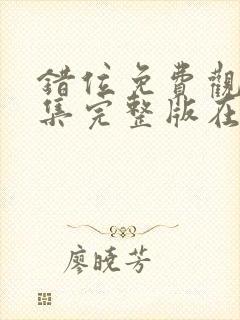 錯位免費觀
集完整版在
廖曉芳